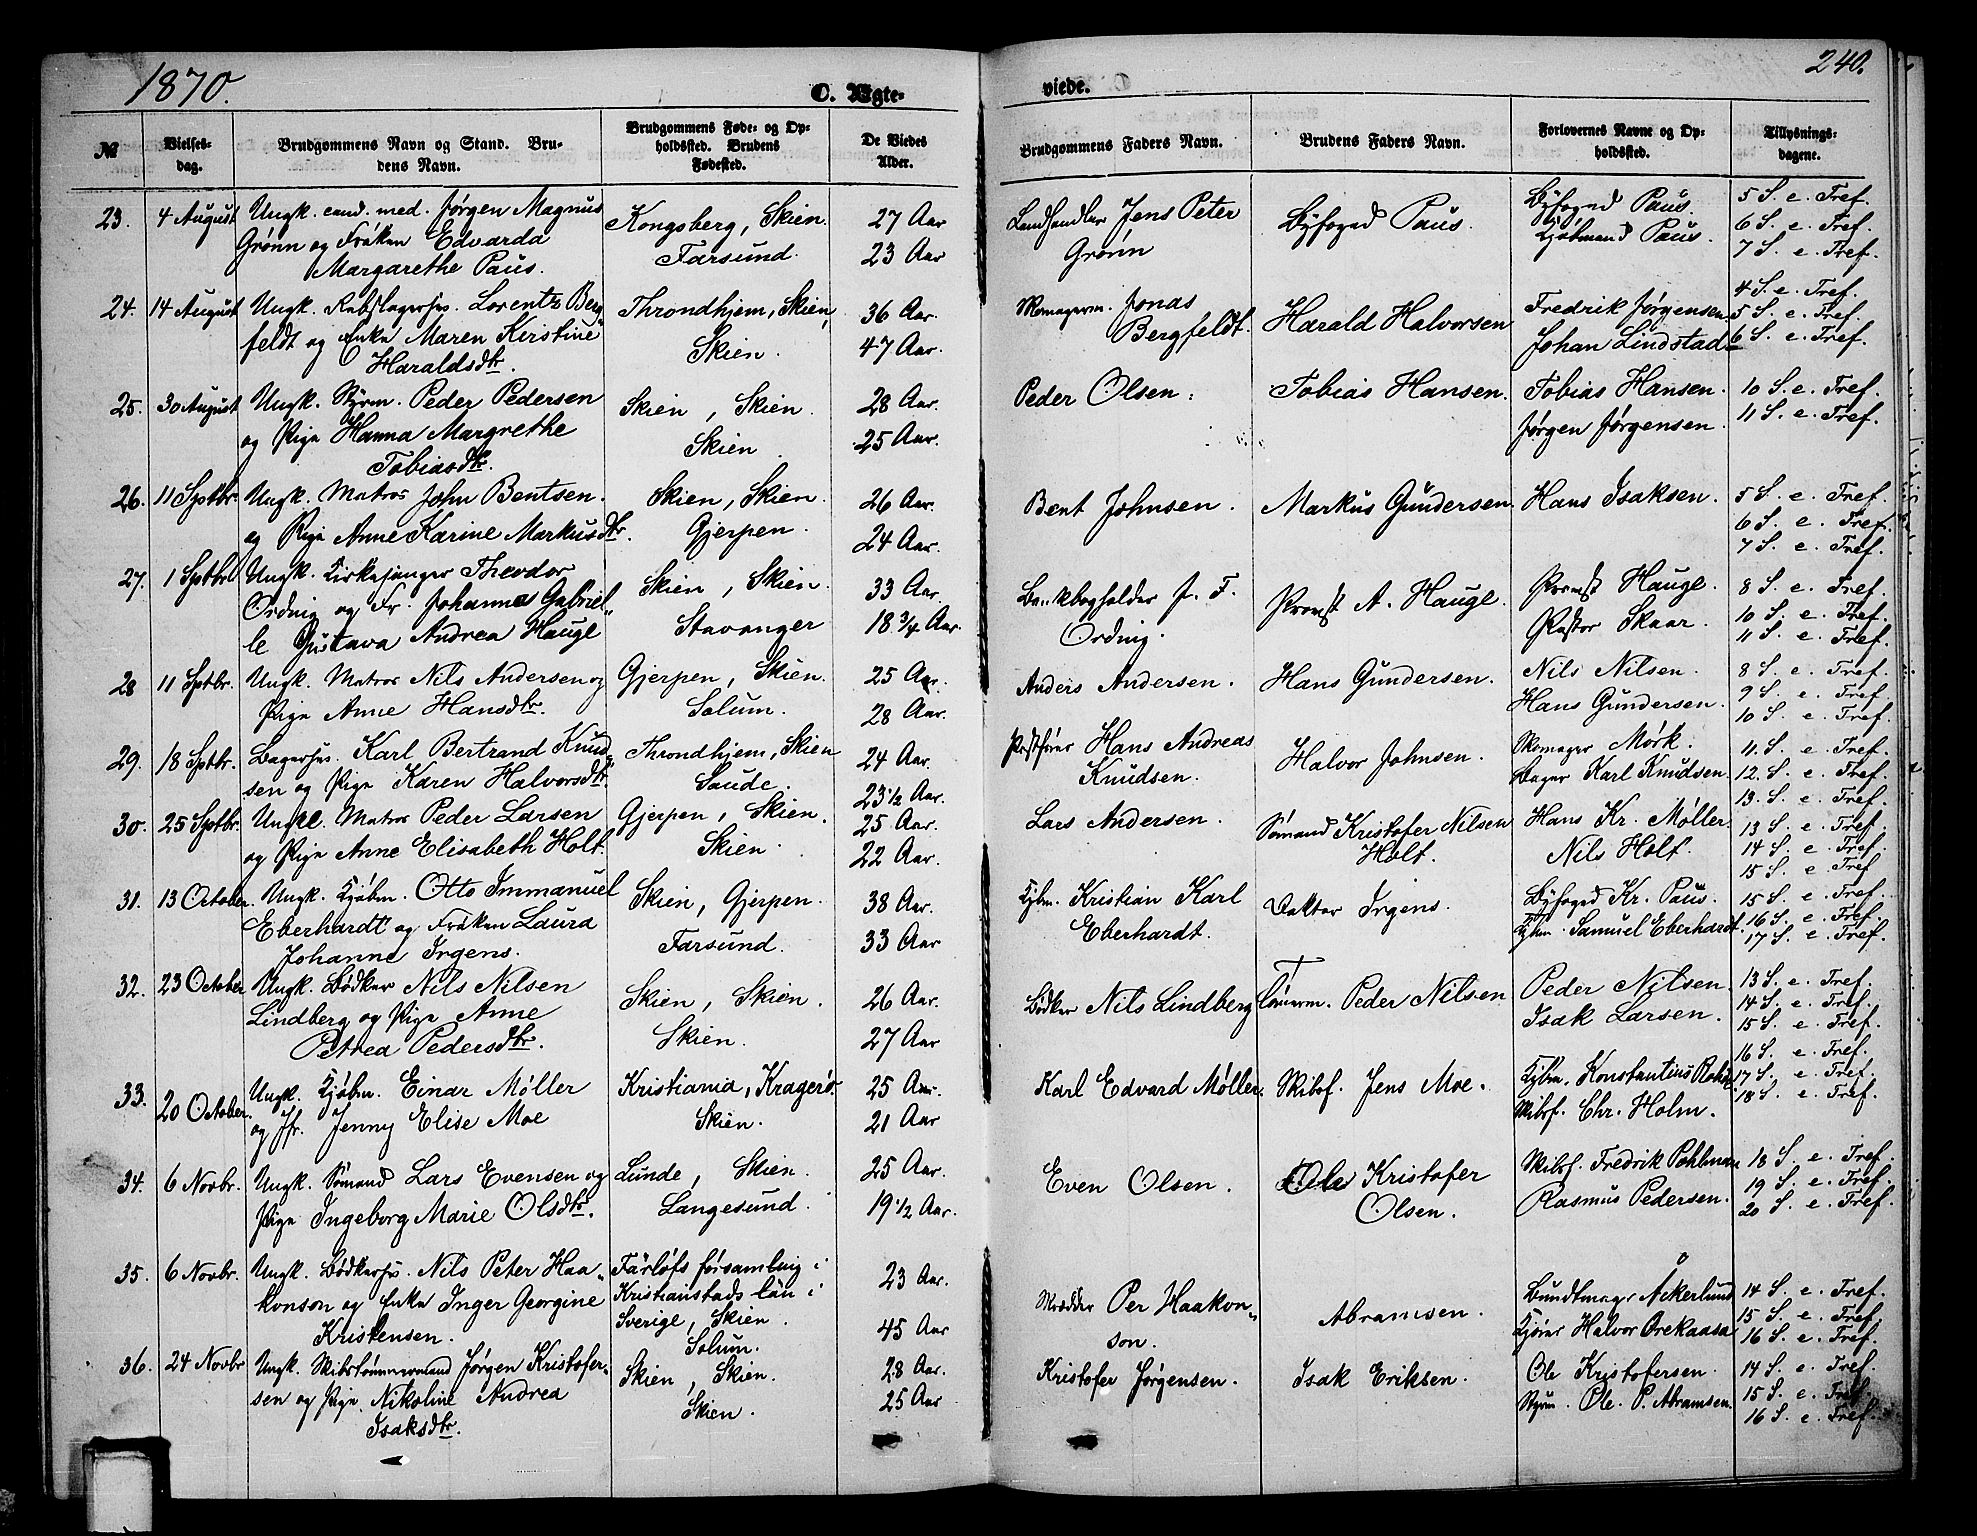 1870.
C. Egte-
viede.
240.
№
Vielses-
dag.
Brudgommens Navn og Stand. Bru-
dens Navn.
Brudgommens Føde- og Op-
holdssted. Brudens
Fødested.
De Viedes
Alder.
Brudgommens Faders Navn.
Brudens Faders Navn.
Forlovernes Navne og Op-
holdssted.
Tillysnings-
dagene.
23. 4 August Ungk. cand. med. Jørgen Magnus
Grønn og Frøken Edvarda
Margarethe Paus.
Kongsberg, Skien.
Farsund.
27 Aar
23 Aar
Landhandler Jens Peter
Grønn
Byfoged Paus.
Byfoged Paus.
Kjøbmand Paus.
5 S. e. Tref.
6 S. e. Tref.
7 S. e. Tref.
24. 14 August Ungk. Rebslagersv. Lorentz Berg
feldt og Enke Maren Kirstine
Haraldsdtr.
Throndhjem, Skien,
Skien.
36 Aar.
47 Aar.
Skomagerm. Jonas
Bergfeldt.
Harald Halvorsen
Fredrik Jørgensen
Johan Lindstad
4 S. e. Tref.
5 S. e. Tref.
6 S. e. Tref.
25. 30 August Ungk. Styrm. Peder Pedersen
og Pige Hanna Margrethe
Tobiasdtr.
Skien, Skien.
Skien
28 Aar.
25 Aar.
Peder Olsen.
Tobias Hansen.
Tobias Hansen.
Jørgen Jørgensen.
10 S. e. Tref.
11 S. e. Tref.
26. 11 Sptbr. Ungk. Matros John Bentsen.
og Pige Anne Karine Markusdtr.
Skien, Skien.
Gjerpen.
26 Aar.
24 Aar.
Bent Johnsen.
Markus Gundersen.
Hans Isaksen.
5 S. e. Tref.
6 S. e. Tref.
7 S. e. Tref.
27. 1 Sptbr. Ungk. Kirkesanger Theodor
Ording og Fr. Johanne Gabriel-
le Gustava Andrea Hauge
Skien, Skien.
Stavanger
33 Aar.
18 3/4 Aar.
Bankbogholder J. F.
Ording.
Provst A. Hauge.
Provst Hauge.
Pastor Skaar.
8 S. e. Tref.
10 S. e. Tref.
11 S. e. Tref.
28 11 Sptbr. Ungk. Matros Nils Andersen og
Pige Anne Hansdtr.
Gjerpen, Skien.
Solum.
25 Aar.
28 Aar.
Anders Andersen.
Hans Gundersen.
Nils Nilsen.
Hans Gundersen.
8 S. e. Tref.
9 S. e. Tref.
10 S. e. Tref.
29. 18 Sptbr. Bagersv. Karl Bertrand Knud-
sen og Pige Karen Halvorsdtr.
Throndhjem, Skien
Saude.
24 Aar.
23 1/2 Aar.
Postfører Hans Andreas
Knudsen.
Halvor Johnsen.
Skomager Mørk.
Bager Karl Knudsen.
11. S. e. Tref.
12. S. e. Tref.
13. S. e. Tref.
30. 25 Sptbr. Ungkl. Matros Peder Larsen
og Pige Anne Elisabeth Holt.
Gjerpen, Skien.
Skien.
25 Aar.
22 Aar.
Lars Andersen.
Sømand Kristofer Nilsen
Holt.
Hans Kr. Møller.
Nils Holt.
13 S. e. Tref.
14 S. e. Tref.
15 S. e. Tref
31. 13 October. Ungk. Kjøbm. Otto Immanuel
Eberhardt og Frøken Laura
Johanne Irgens.
Skien, Gjerpen.
Farsund.
38 Aar.
33 Aar
Kjbm. Kristian Karl
Eberhardt.
Doktor Irgens.
Byfoged Kr. Paus.
Kjbm. Samuel Eberhardt.
15 S. e. Tref.
16 S. e. Tref.
17 S. e. Tref.
32. 23 October Ungk. Bødker Nils Nilsen
Lindberg og Pige Anne
Petrea Pedersdtr.
Skien, Skien.
Skien.
26 Aar.
27 Aar
Bødker Nils Lindberg
Tømerm. Peder Nilsen
Peder Nilsen.
Isak Larsen.
13 S. e. Tref.
14 S. e. Tref.
15 S. e. Tref.
33. 20 October. Ungk. Kjøbm. Einar Møller
og Jfr. Jenny Elise Moe
Kristiania, Kragerø.
Skien.
25 Aar.
21 Aar
Karl Edvard Møller.
Skibsf. Jens Moe.
Kjbm. Konstantius
Skibsf. Chr. Holm.
16 S. e. Tref.
17 S. e. Tref.
18 S. e. Tref.
34. 6 Novbr. Ungk. Sømand Lars Evensen og
Pige Ingeborg Marie Olsdtr.
Lunde, Skien.
Langesund.
25 Aar.
19 1/2 Aar.
Even Olsen.
Ole Kristofer
Olsen.
Skibsf. Fredrik Pohlman
Rasmus Pedersen.
18 S. e. Tref.
19 S. e. Tref.
20 S. e. Tref.
35. 6 Novbr. Ungk. Bødkersv. Nils Peter Haa-
konson og Enke Inger Georgine
Kristensen.
Färløfs församling i
Kristianstads län i
Sverige, Skien.
Solum.
23 Aar.
45 Aar
Skrædder Per Haakon-
son.
Abramsen.
Bundtmager Åkerlund
Kjører Halvor Orekaasa
14 S. e. Tref.
15 S. e. Tref.
16 S. e. Tref.
36. 24 Novbr Ungk. Skibstømmermand Jørgen Kristofer-
sen og Pige Nikoline Andrea
Isaksdtr.
Skien, Skien.
Skien.
28 Aar.
25 Aar
Kristofer Jørgensen.
Isak Eriksen.
Ole Kristofersen.
Styrm. Ole P. Abramsen.
14 S. e. Tref.
15 S. e. Tref.
16 S. e. Tref.